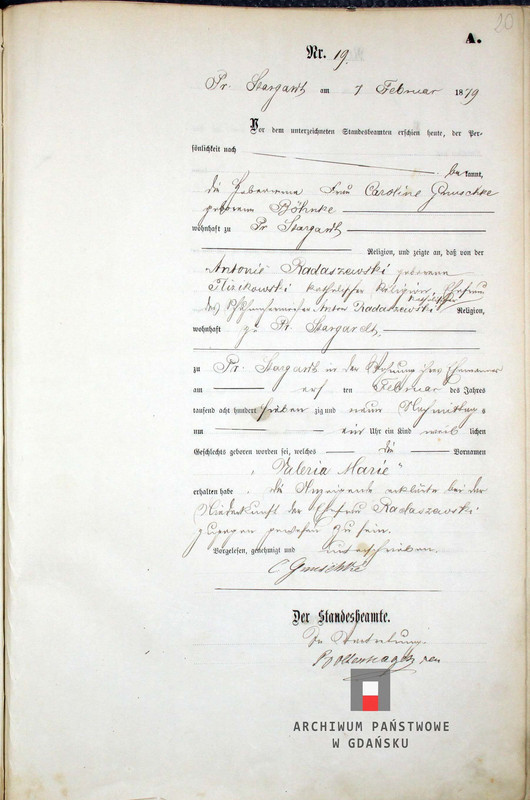 20
A.
Nr. 19.
Pr. Stargardt am 7 Februar 1879
Vor dem unterzeichneten Standesbeamten erschien heute, der Per-
sönlichkeit nach
bekannt,
die Hebeamme Frau Caroline
geborene Böhnke
wohnhaft zu Pr. Stargardt
Religion, und zeigte an, daß von der
Antonie Radaszewski geborene
katholischer Religion, Ehefrau
des Anton Radaszewski katholischer Religion,
wohnhaft zu Pr. Stargardt,
zu Pr. Stargardt in der Wohnung ihres Ehemannes
am ersten Februar des Jahres
tausend acht hundert siebenzig und neun Nachmittags
um ein Uhr ein Kind weiblichen
Geschlechts geboren worden sei, welches die Vornamen
„Valeria Marie“
erhalten habe. die Anzeigende erklärte bei der
Niederkunft der Ehefrau Radaszewski
zugegen gewesen zu sein.
Vorgelesen, genehmigt und unterschrieben.
Der Standesbeamte.
In Vertretung.
ARCHIWUM PAŃSTWOWE
W GDAŃSKU